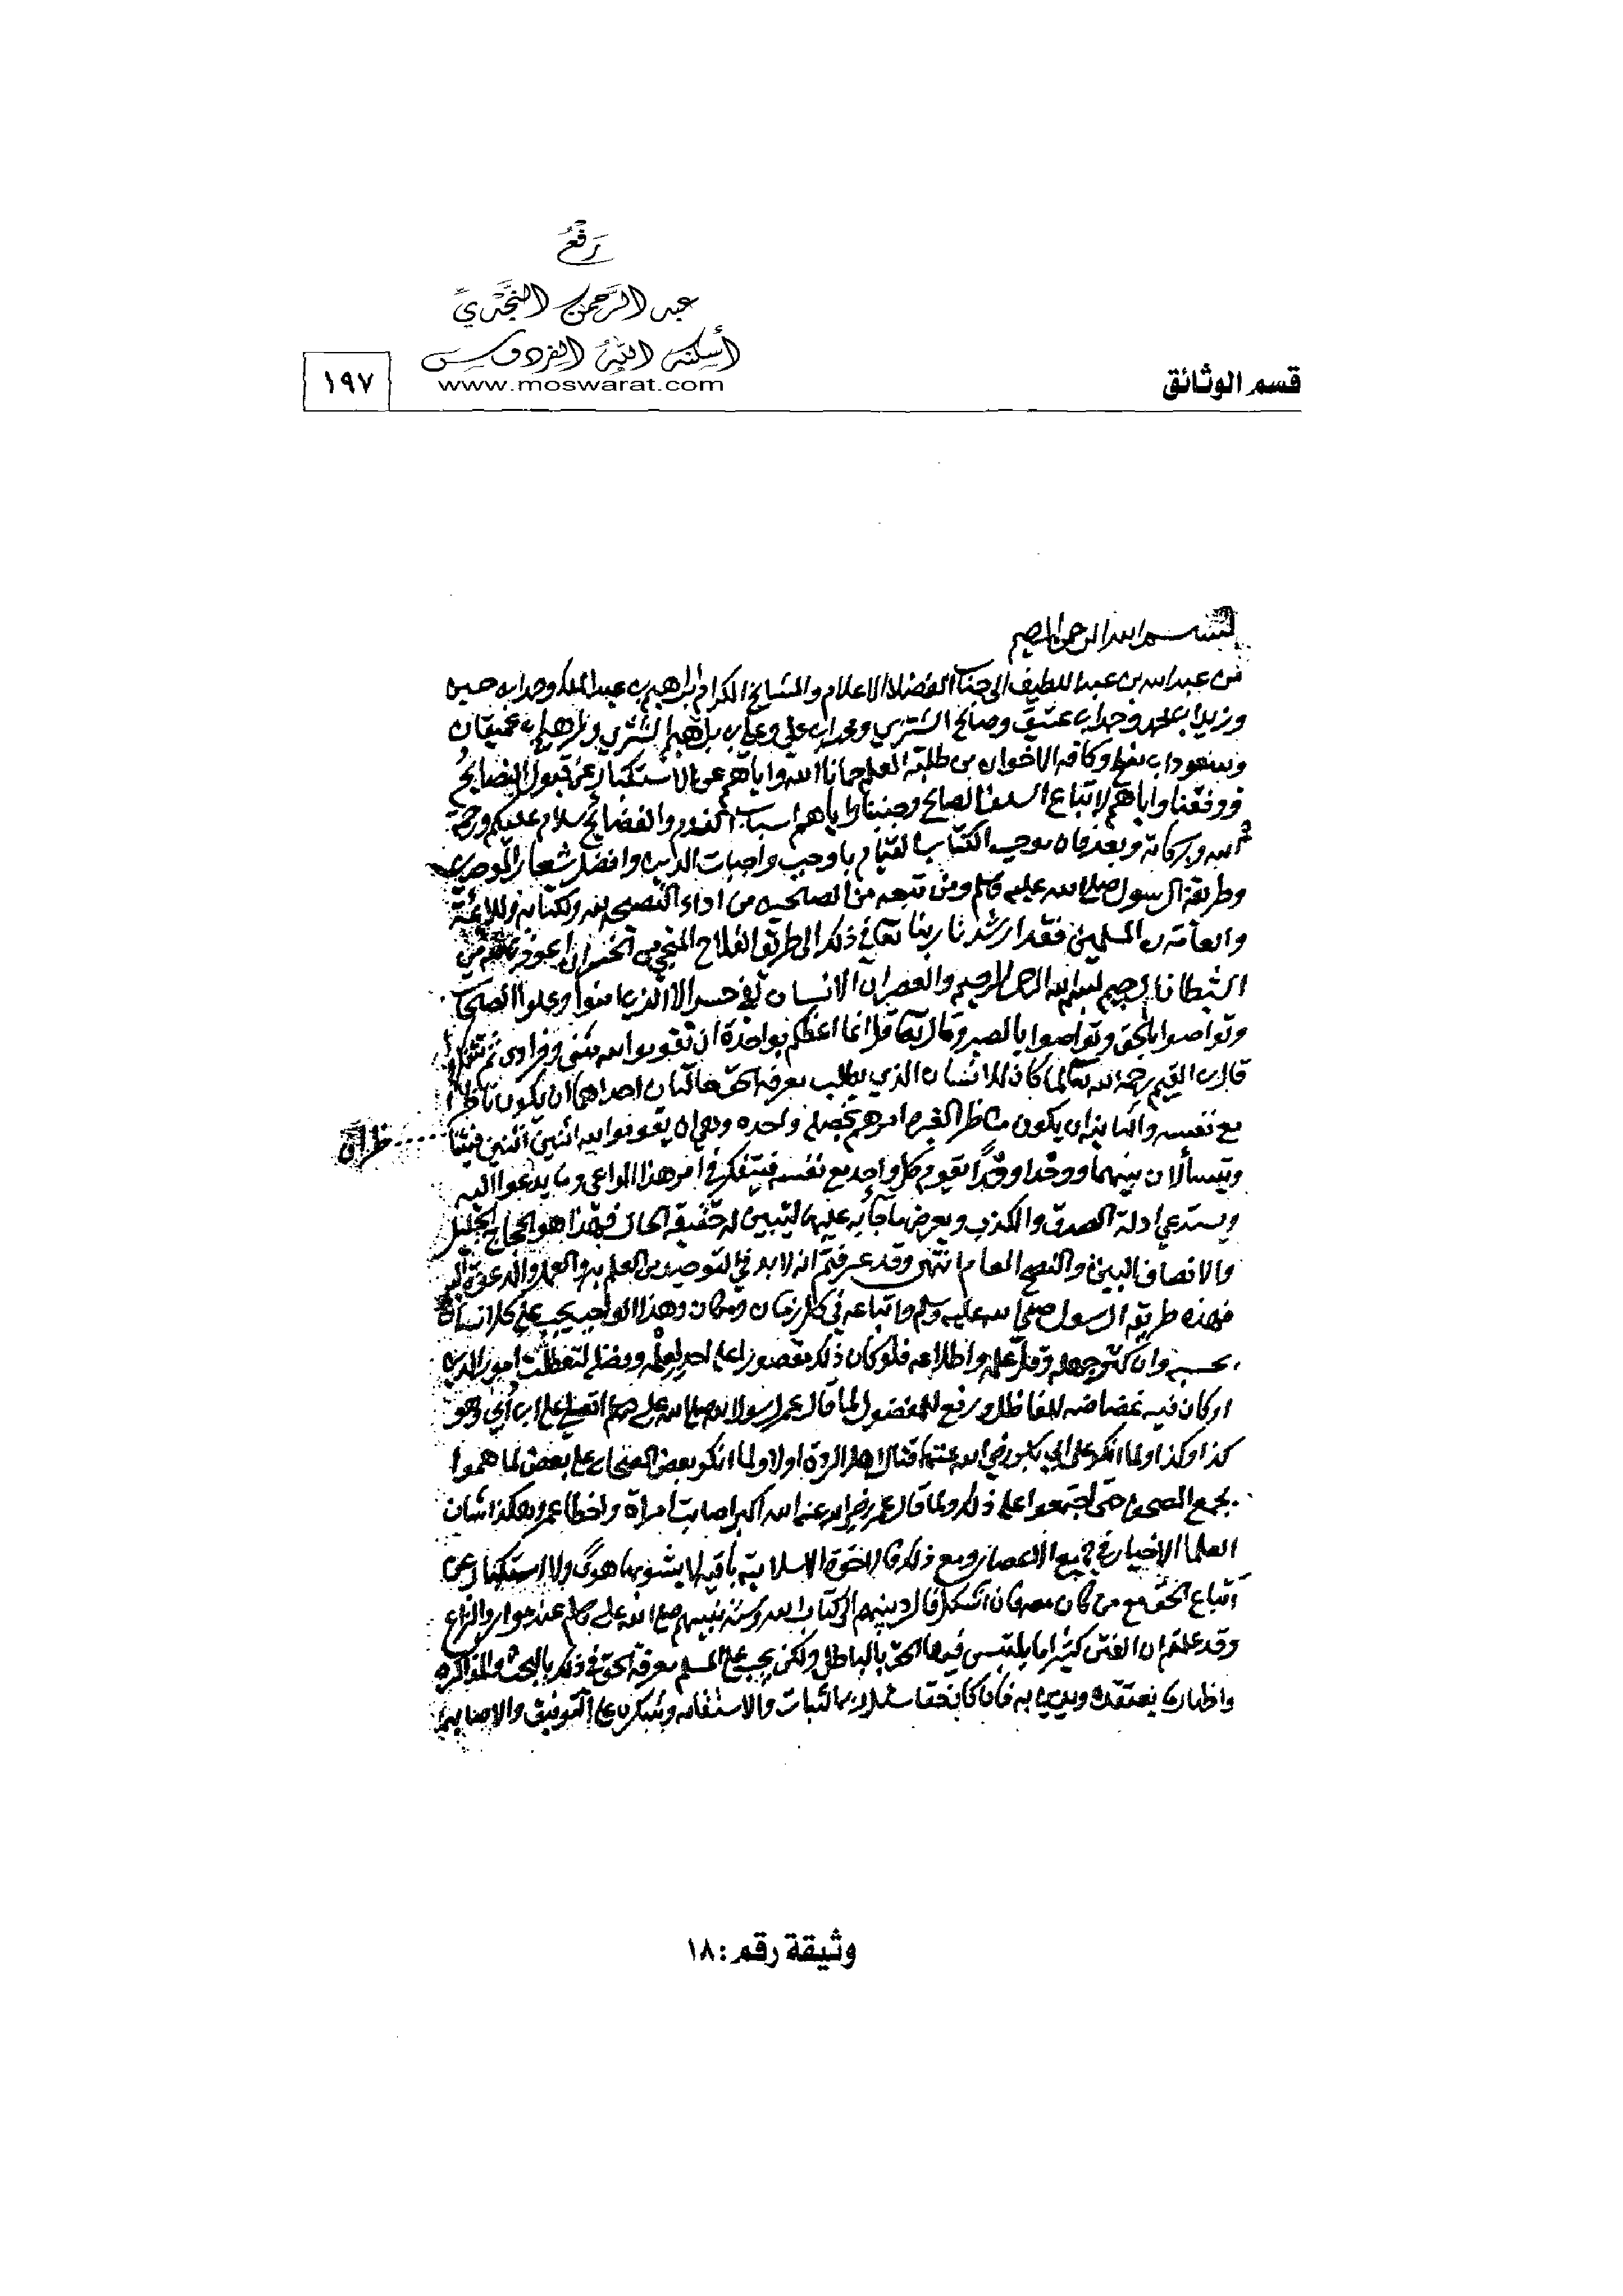 رَفْعُ
عبد الرَّحمن النَّجْدي
أسكنه الله الفردوس
www.moswarat.com
قسم الوثائق
١٩٧
بسم الله الرحمن الرحيم
من عبد الله بن عبد اللطيف الى جناب الفضلا الاعلام والمشايخ الكرام ابراهيم بن عبد الملك وحمد ابن حسين
وزيد ابن محمد وحمد ابن عتيق وصالح الشثري ومحمد ابن علي وعلي ابن ابراهيم الشثري وابراهيم ابن عميقان
وسعود ابن مفلح وكافة الاخوان من طلبة العلم حمانا الله واياهم عن الاستكبار عن قبول النصايح
ووفقنا واياهم لاتباع السلف الصالح وجنبنا واياهم اسباب والفضائح سلام عليكم ورحمة
الله وبركاته وبعد فان موجب الكتاب القيام باوجب واجبات الدين وافضل شعار الموحدين
وطريقة الرسول صلى الله عليه وسلم ومن تبعه من الصالحين من اداء النصح لله ولكتابه وللائمة
والعامة من المسلمين فقد ارشدنا ربنا تعالى في ذلك الى طريق الفلاح المنجي من الخسران اعوذ بالله من
الشيطان الرجيم بسم الله الرحمن الرحيم والعصر ان الانسان لفي خسر الا الذين امنوا وعملوا الصلحت
وتواصوا بالحق وتواصوا بالصبر وقال تعالى قل انما اعظكم بواحدة ان تقوموا لله مثنى وفرادى ثم تتفكروا
قال ابن القيم رحمه الله تعالى لما كان للانسان الذي يطلب معرفة الحق حالتان احداهما ان يكون ناظرا
مع نفسه والثانية ان يكون مناظرا لغيره امرهم بخصلة واحدة وهي ان يقوموا لله اثنين اثنين فيتنا
ظران
ويتسألان بينهما وواحدا واحدا يقوم كل واحد مع نفسه فيتفكر في امر هذا الداعي وما يدعوا اليه
ويستدعي ادلة الصدق والكذب ويعرض ما جاء به عليها ليتبين له حقيقة الحال فهذا هو الحجاج الجليل
والانصاف البين والنصح العام انتهى وقد عرفتم انه لا بد في التوحيد من العلم به والعمل والدعوة اليه
فهذه طريقة الرسول صلى الله عليه وسلم واتباعه في كل زمان ومكان وهذا الواجب يجب على كل انسان
بحسبه وان كثر جهله وقل علمه واطلاعه فلو كان ذلك مقصورا على احد لعلمه وفضله لتعطلت امور الدين
او كان فيه غضاضة للفاظل ورفع للمفضول لما قال عمر لرسول الله صلى الله عليه وسلم اتصلي على ابن أبي وهو
كذا وكذا ولما انكر على ابي بكر رضي الله عنهما قتال اهل الردة اولا ولما انكر بعض الصحابة على بعض لما هموا
بجمع المصحف حتى اجتمعوا على ذلك ولما قال عمر رضي الله عنه الله اكبر اصابت امرأة واخطا عمر وهكذا شان
العلما الاخيار في جميع الاعصار ومع ذلك فالاخوة الاسلامية باقية لا يشوبها هوى ولا استكبار عن
اتباع الحق مع من كان معه فان اشكل فالرد بينهم الى كتاب الله وسنة نبيهم صلى الله عليه وسلم عند موارد النزاع
وقد علمتم ان الفتن كثيرا ما يلتبس فيها الحق بالباطل ولكن يجب على المسلم معرفة الحق في ذلك بالبحث والمذاكرة
واظهار ما يعتقده ويدين به فان كان حقا بالثبات والاستقامه ويشكر على التوفيق والاصابة
وثيقة رقم: ١٨